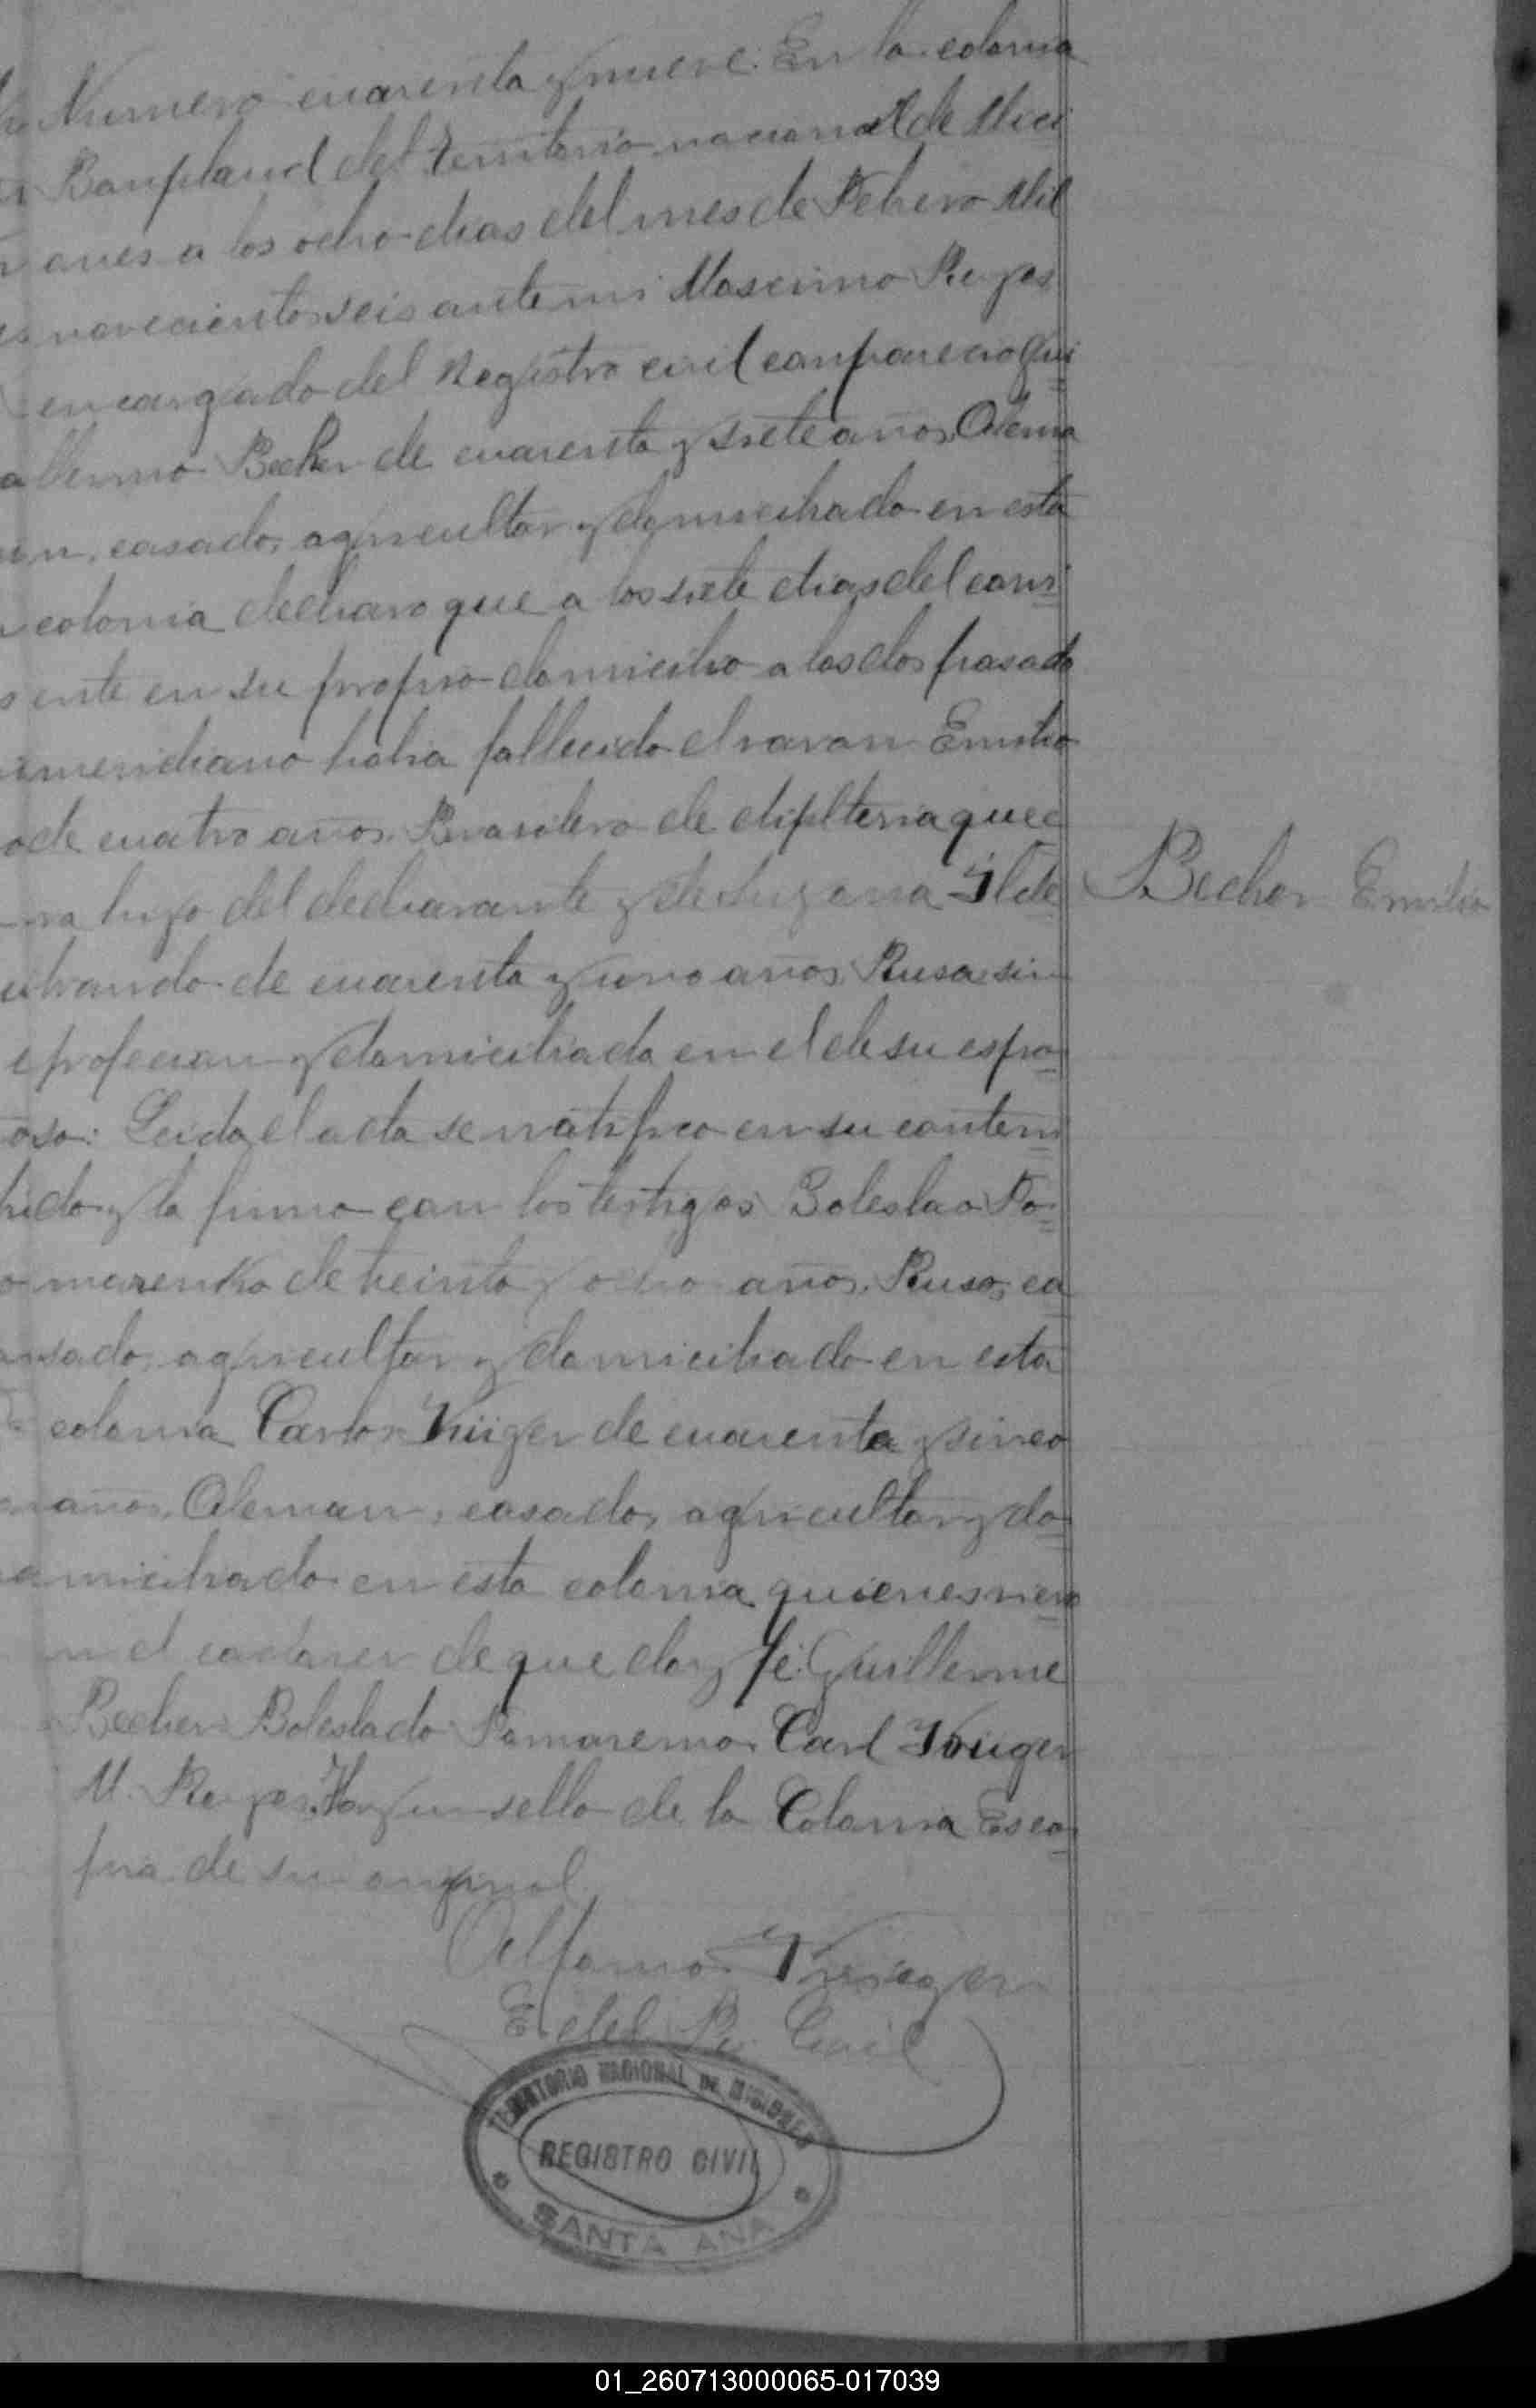 Numero cuarenta y nueve. En la colonia
Banpland del Territorio nacional de Mici
ones a los ocho dias del mes de Febrero Mil
novecientos seis ante mi Macximo Reyes
encargado del Registro civil conparecio Gui
llermo Becher de cuarenta y siete años, Alema
n, casado, agricultor y domiciliado en esta
colonia declaro que a los siete dias del corri
ente en su propio domicilio a las dos pasado
meridiano habia fallecido el varon Emilio
de cuatro años. Brasilero de diplteria que e
ra hijo del declarante y de Luyana Ilde
brando de cuarenta y uno años. Rusa, sin
profecion y domiciliada en el de su espo
so: Leida el acta se ratifico en su conteni
do y la firmo con los testigos Boleslao Po
marenko de treinta y ocho años. Ruso, ca
sado, agricultor y domiciliado en esta
colonia Carlos Krüger de cuarenta y sinco
años, Aleman, casado, agricultor y do
miciliado en esta colonia quienes viero
n el cadaver de que doy fé. Guillerme
Becher Boleslado Pomaremo. Carl Krüger
M. Reyes. Hay un sello de la Colonia Es co
pia de su original
Becher Emilio
E. del R. Civil
TERRITORIO NACIONAL DE MISIONES
REGISTRO CIVIL
SANTA ANA
01_260713000065-017039